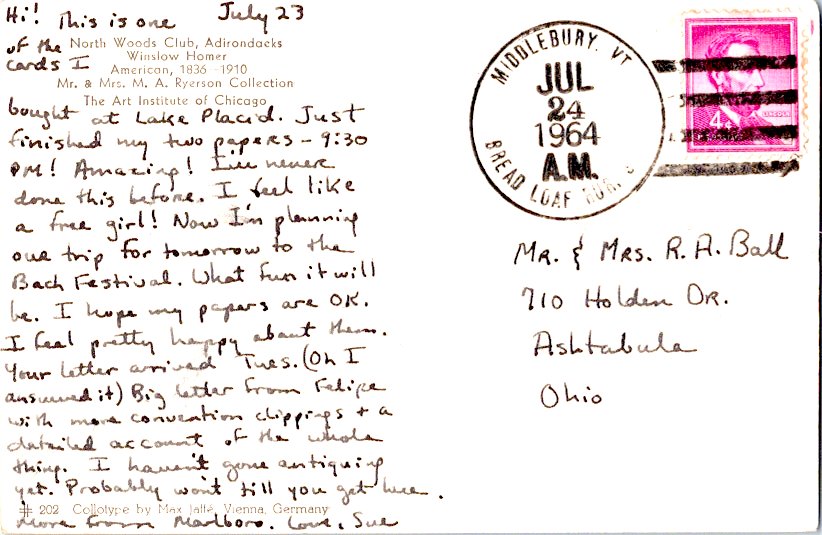 Hi! This is one July 23
of the
cards I
North Woods Club, Adirondacks
Winslow Homer
American, 1836-1910
Mr. & Mrs. M. A. Ryerson Collection
The Art Institute of Chicago
bought at Lake Placid. Just
finished my two papers - 9:30
PM! Amazing! I've never
done this before. I feel like
a free girl! Now I'm planning
our trip for tomorrow to the
Bach Festival. What fun it will
be. I hope my papers are OK.
I feel pretty happy about them.
Your letter arrived Tues. (Oh I
answered it) Big letter from Felipe
with more convention clippings + a
detailed account of the whole
thing. I haven't gone antiquing
yet. Probably won't till you get here.
# 202 Collotype by Max Jaffé, Vienna, Germany
More from Marlboro. Love, Sue
MIDDLEBURY, VT
JUL
24
1964
A.M.
BREAD LOAF RUR.
4¢
LINCOLN
Mr. & Mrs. R. A. Ball
710 Holden Dr.
Ashtabula
Ohio